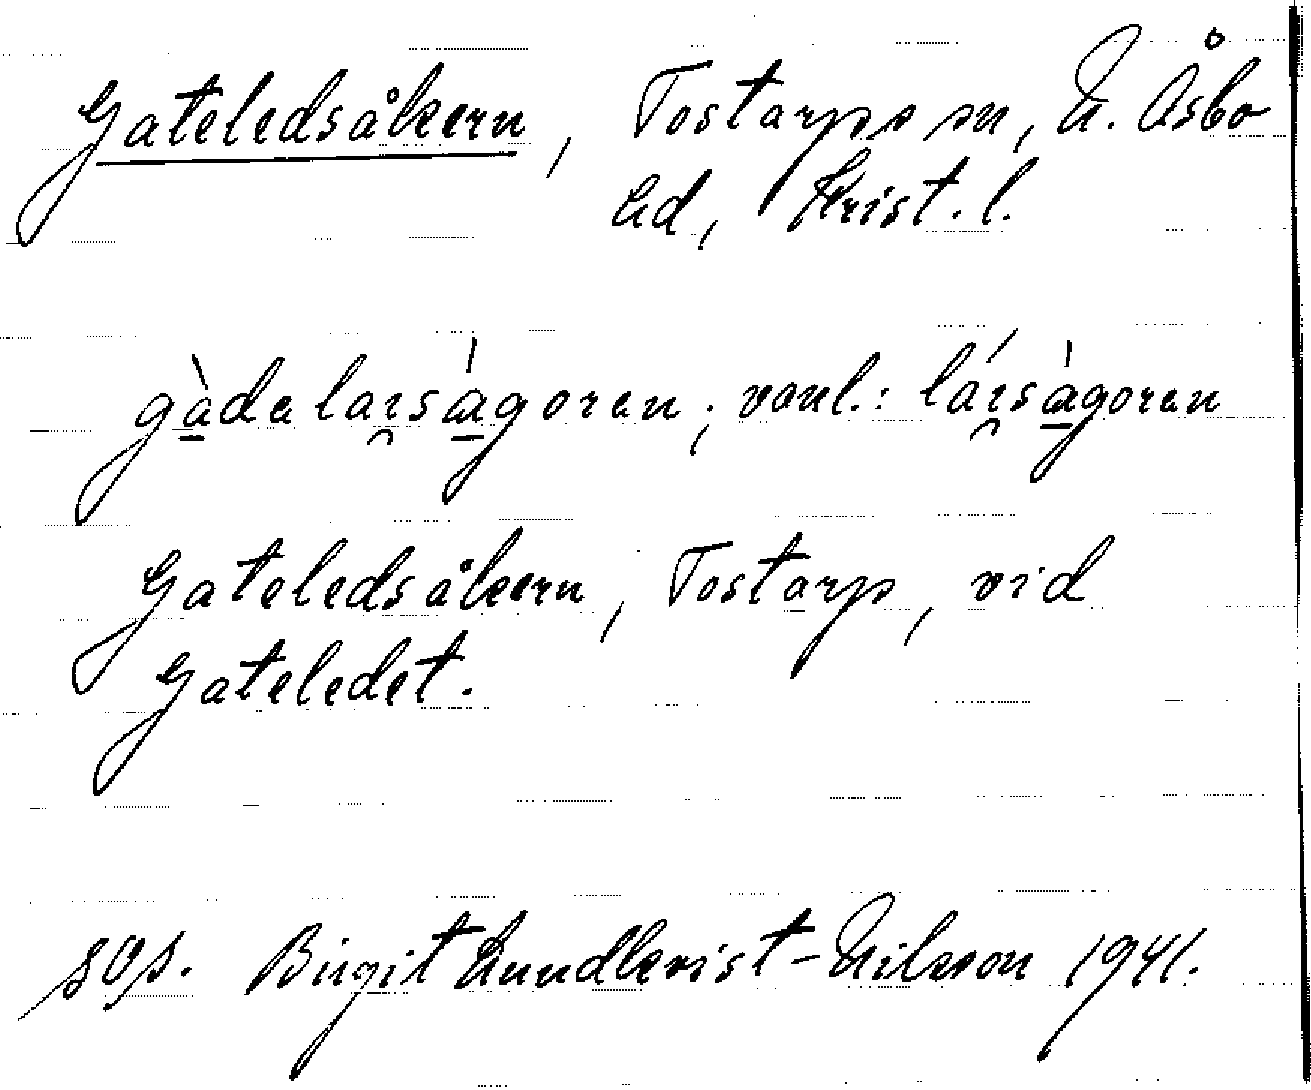 Gateledsåkern, Tostarps sn, N. Åsbo
hd, Krist. l.
gàdalaɪsàgoren; vanl.: láɪsàgoren
Gateledsåkern, Tostarp, vid
Gateledet.
Birgit Lundkvist-Nilsson 1941.